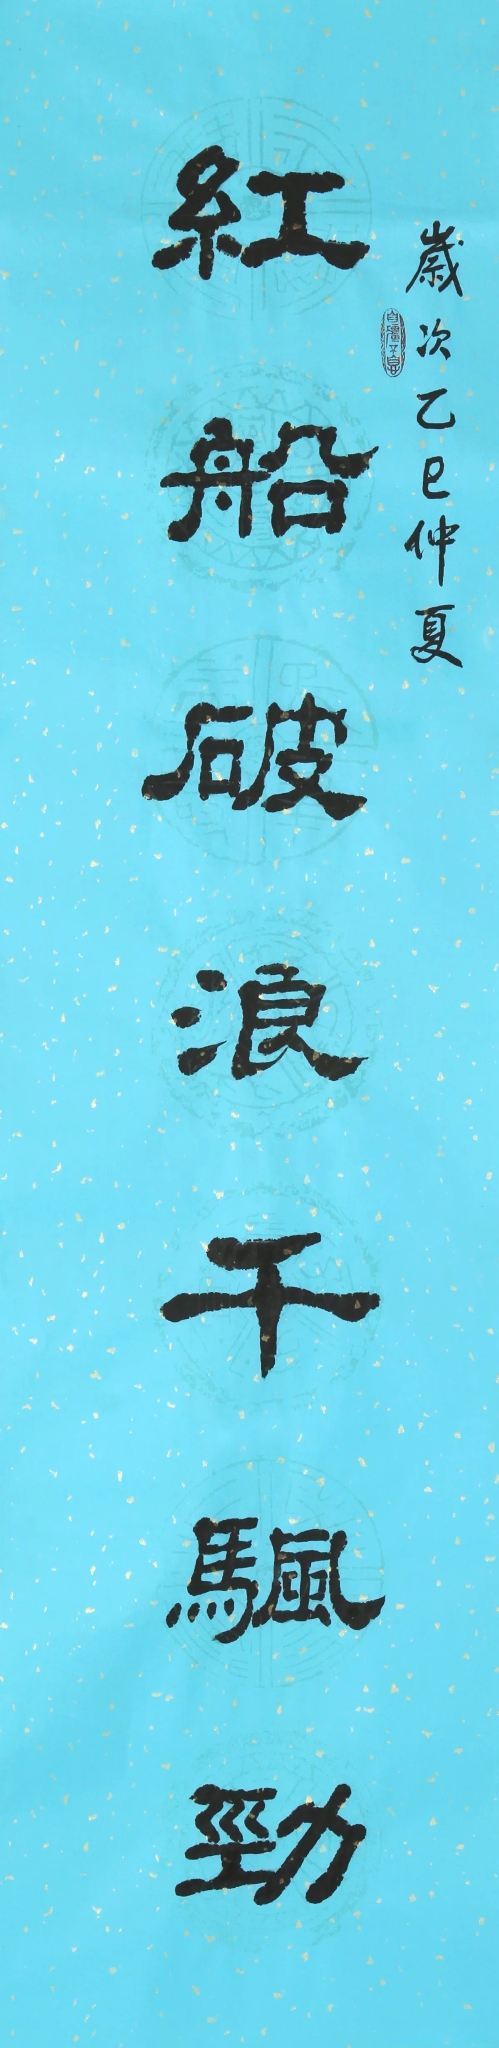 歲次乙巳仲夏
紅船破浪千颿勁